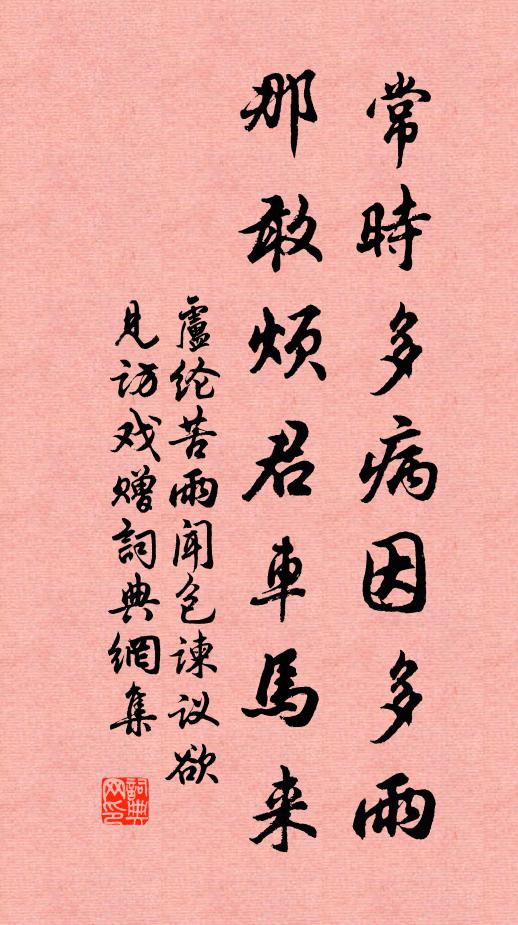 常時多病因多雨
那敢煩君車馬来
盧纶苦雨闻包谏议欲
見访戏赠詞典網集
詞典网印